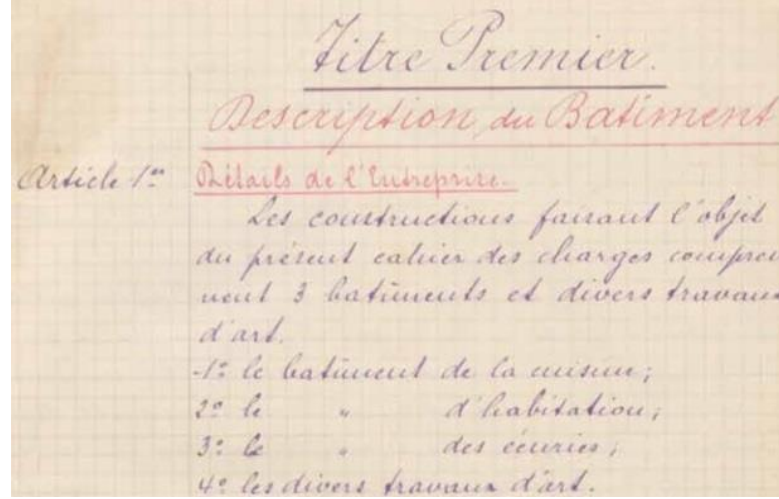 Titre Premier.
Description du Batiment
Article 1er Détails de l'Entreprise.
Les constructions faisant l'objet
du présent cahier des charges compren
nent 3 batiments et divers travaux
d'art.
1º le batiment de la cuisine;
2º le " d'habitation;
3º le " des écuries;
4º les divers travaux d'art.